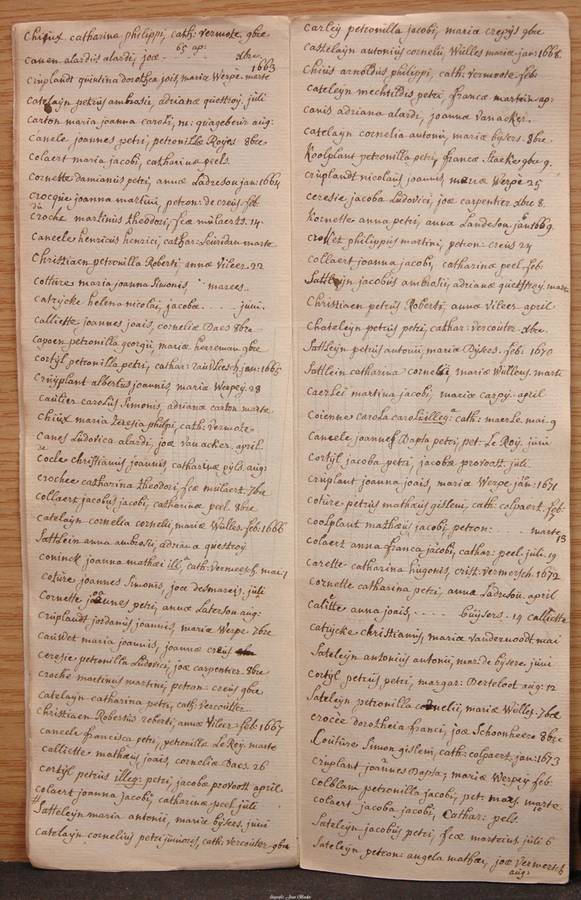 Chieux catharina philippi, cath: vermote gbre
65 ap:
Cauen alardus alardi, joæ . . . . . . xbre
1663
Cruplandt quintina dorothea jois, mariæ Werpe. marte
Catelayn petrus ambrosii, adrianæ questroy. juli
Carton maria joanna caroli, m: quagebeur aug:
Canele joannes petri, petronillæ Royes 8bre
Colaert maria jacobi, catharinæ peels.
Cornette damianus petri, annæ Ladreson jan: 1664
Crocque joanna martini, petron: de creus feb.
du
Croche martinus theodori, fcæ mulaerts. 14.
Caneele henricus henrici, cathar: Scuridan marte
Christiaen petronilla Roberti annæ vileer. 22
Cotture maria joanna Simonis, " marees.
Catrijcke helena nicolai, jacobæ . . . juni.
Calliette, joannes joais, corneliæ Daes 8bre
Capoen petronilla georgii, mariæ herreman gbre
Cortyl petronilla petri, cathar: Van Vliesch jan: 1665
Cruyplant albertus joannis, maria Werpey. 28
Caulier carolus Simonis, adrianæ carton marte
Chieux maria teresia philpi, cath: vermote
Canes Ludovica alardi, joæ van acker. april.
de
Cocle christianus joannis, catharinæ pyls. aug:
Crochee catharina theodori, fcæ mulaert. 7bre
Collaert jacobus jacobi, catharinæ peel. 8bre
Catelayn cornelia cornelii, mariæ Wulles. feb: 1666
Sattlein anna ambrosii, adriana questroy
Coninck joanna mathei ill:a cath: vermeesch. mai.
Coture, joannes Simonis, joæ desmareis, juli
Cornette joannes petri, annæ Laterson aug:
Cruplandt jordanus joannis, mariæ Werpe 7bre
Cauwet maria joannis, joannæ creus
Ceresie petronilla Ludovici, joæ carpentier. 8bre
Croche martinus martini, petron: creus gbre
Catelayn catharina petri, cath: vercoutter
Christiaen Robertus roberti, annæ vileer feb: 1667
Cancele francisca petri, petronilla Le Roy. marte
Calliette mathæus joais, corneliæ Daes. 26
Cortyl petrus illeg: petri, jacobæ provoost april.
Colaert joanna jacobi, catharinæ peel juli
Satteleyn maria antonii, mariæ byseres. juni
Catelayn cornelius petri junioris, cath: vercoutter gbre
Carley petronilla jacobi, mariæ creпys gbre
Castelaijn antonius cornelii, Wulles mariæ jan: 1668.
Chieus arnoldus philippi, cath: vermoote. feb:
Cateleyn mechtildis petri, francæ martein ap:
Canis adriana alardi, joannæ Van acker.
Catelayn cornelia antonii, mariæ bysers. 8bre
Koolplant petronilla petri, francæ Staekes gbe 9.
Cruplandt nicolaus joannis mariæ Werpe 25
Ceresie jacoba Ludovici, joæ carpentier xbre 8.
Kornette anna petri, anna Landeson jan 1669.
Crocket philippus martini, petron: creus 24
Collaert joanna jacobi, catharinæ peel feb:
Sattleyn jacobus ambrosii, adrianæ questroy. marte
Christiaen petrus Roberti, anna vileer april
Chateleyn petrus petri, cathar: Vercoutre xbre.
Sattleyn petrus antonii, maria Bysers. feb: 1670
Sattlein catharina cornelii mariæ Wulleus. marte
Caerlei martina jacobi, mariæ carpy. april
Coienne carola caroli illeg:a cath: maerle mai. 9
Cancele joannes Bapta petri, pet: Le Roy. juni
Cortyl jacoba petri, jacobæ provoost. juli.
Cruplant joanna joais, mariæ Werpe jan: 1671
Coture petrus mathæus gisleni, cath: colpaert. feb:
7
Coolplant mathæus jacobi, petron: . . . . marte
13
Colaert anna franca jacobi, cathar: peel juli. 19
Carette catharina hugonis, crist: vermersch. 1672
Cornette catharina petri, anna Ladesou. april
Calitte anna joais, . . . . buysers. 19 calliette
Catrycke christianus, mariæ vandernoodt mai
Sateleyn antonius antonii, mar: de bysere. juni
Cortyl petrus petri, margar: Berteloot aug: 12
Sateleyn petronilla cornelii, mariæ Wulles. 7bre
Crocee dorotheia franci, joæ Schoonheere 8bre
Couture Simon gisleni, cath: colpaert. jan: 1673
Cruplant joannes Bapta; mariæ Werpey feb:
Colblam petronilla jacobi, pet: maes. marte
10
Colaert jacoba jacobi, Cathar: pels
Sateleyn jacobus petri, fcæ marteins juli 6
Sateleyn petron: angela mathæi, joæ Vermersch
aug: